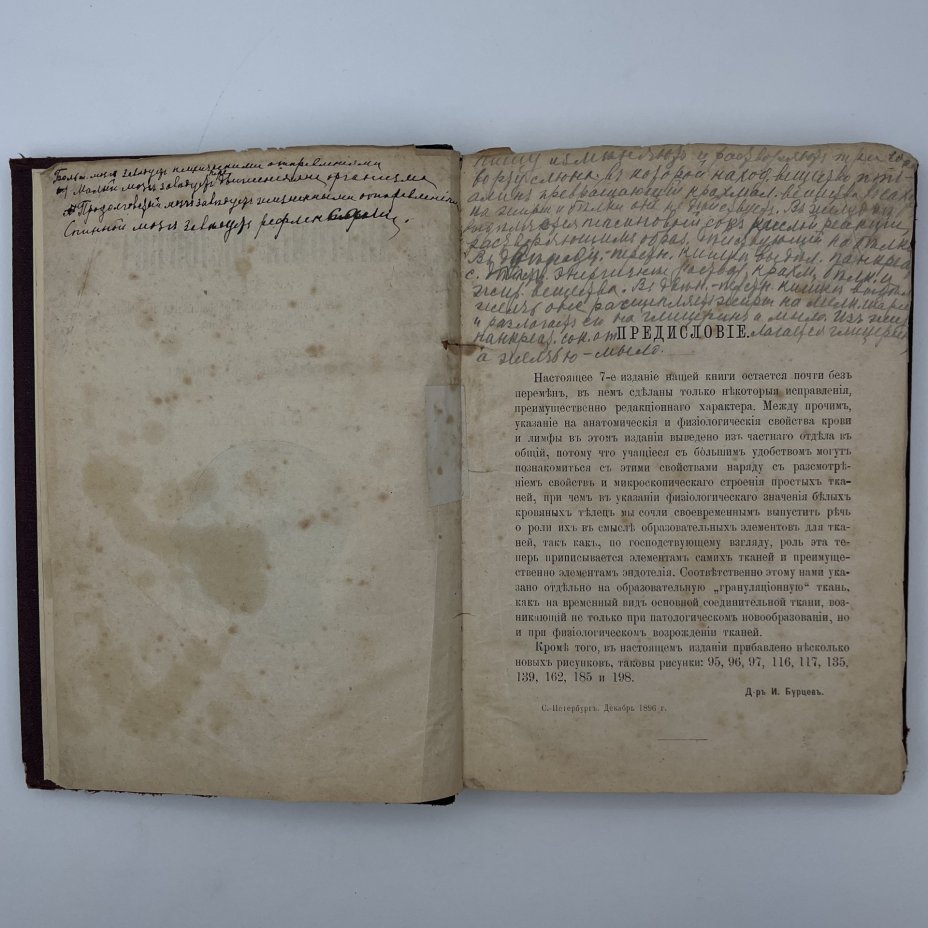 мозг заведуетъ психическими отправленіями
Малый мозгъ заведуетъ движеніями организма
Продолговатый мозгъ заведуетъ жизненными отправленіями
Спинной мозгъ заведуетъ
пищу
слюна, въ которой наход. вещество
превращающій крахмал. вещества
на жиры и бѣлки она не дѣйствуетъ. Въ желудкѣ
сокъ кислой реакціи
растворяющимъ образ. дѣйствующій на бѣлки
Въ кишкѣ выдѣл. панкреат.
с. раствор. крахм., бѣлк. и
жир. вещества. Въ кишкѣ
желчь, она расщипляетъ жиры на мелк. шар.
и разлогаетъ ея на глицеринъ и мыло. Изъ
панкреат. сок. от лагается глицеринъ,
а желчью – мыло.
ПРЕДИСЛОВІЕ.
Настоящее 7-е изданіе нашей книги остается почти безъ
перемѣнъ, въ немъ сдѣланы только нѣкоторыя исправленія,
преимущественно редакціоннаго характера. Между прочимъ,
указаніе на анатомическія и физіологическія свойства крови
и лимфы въ этомъ изданіи выведено изъ частнаго отдѣла въ
общій, потому что учащіеся съ бо́льшимъ удобствомъ могутъ
познакомиться съ этими свойствами наряду съ разсмотрѣ-
ніемъ свойствъ и микроскопическаго строенія простыхъ тка-
ней, при чемъ въ указаніи физіологическаго значенія бѣлыхъ
кровяныхъ тѣлецъ мы сочли своевременнымъ выпустить рѣчь
о роли ихъ въ смыслѣ образовательныхъ элементовъ для тка-
ней, такъ какъ, по господствующему взгляду, роль эта те-
перь приписывается элементамъ самихъ тканей и преимуще-
ственно элементамъ эндотелія. Соотвѣтственно этому нами ука-
зано отдѣльно на образовательную „грануляціонную“ ткань,
какъ на временный видъ основной соединительной ткани, воз-
никающій не только при патологическомъ новообразованіи, но
и при физіологическомъ возрожденіи тканей.
Кромѣ того, въ настоящемъ изданіи прибавлено нѣсколько
новыхъ рисунковъ, таковы рисунки: 95, 96, 97, 116, 117, 135,
139, 162, 185 и 198.
Д-ръ И. Бурцевъ.
С.-Петербургъ. Декабрь 1896 г.